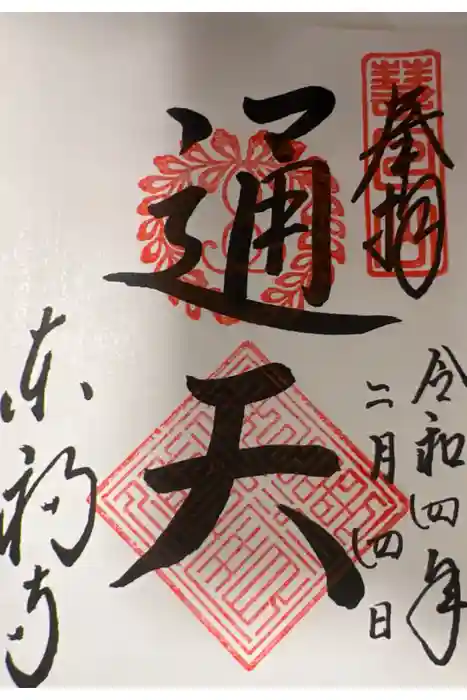 奉拝
令和四年
二月四日
通天
东福寺